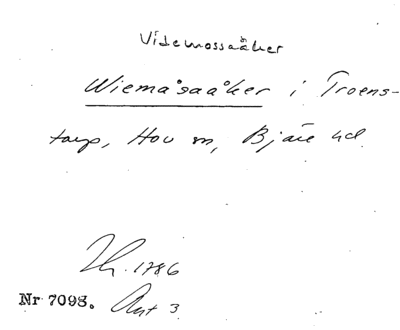 Videmossaåker
Wiemåsaåker i Troens-
torp, Hov sn, Bjäre hd
Lh. 1786
Nr 7098. Akt 3